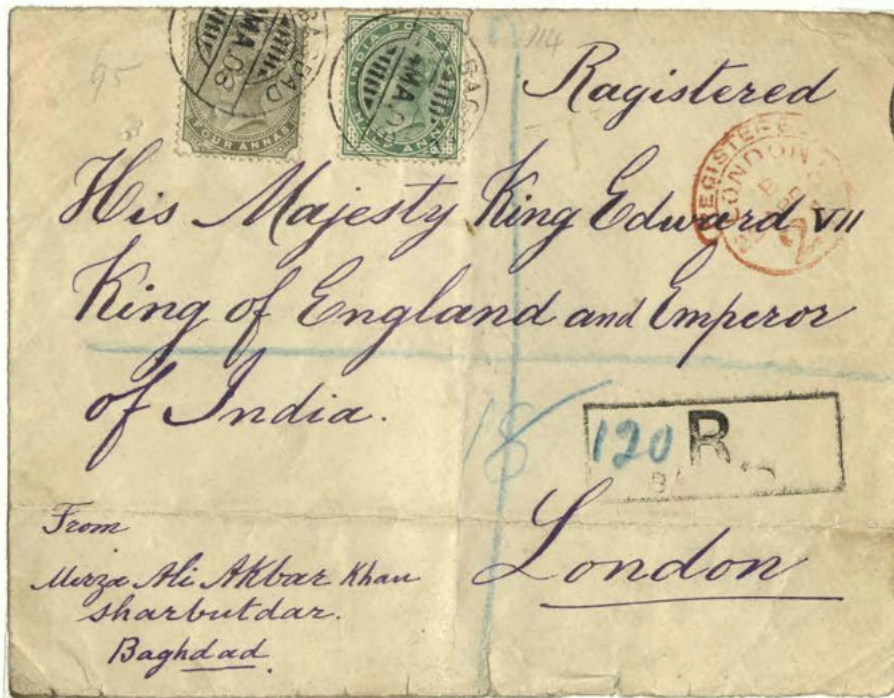 95
114
FOUR ANNAS
INDIA POSTAGE
HALF ANNA
MA.03
BAGDAD
MA.03
Ragistered
REGISTERED
LONDON
His Majesty King Edward VII
King of England and Emperor
of India.
18
120 R
From
London
Mirza Ali Akbar Khan
sharbutdar.
Baghdad